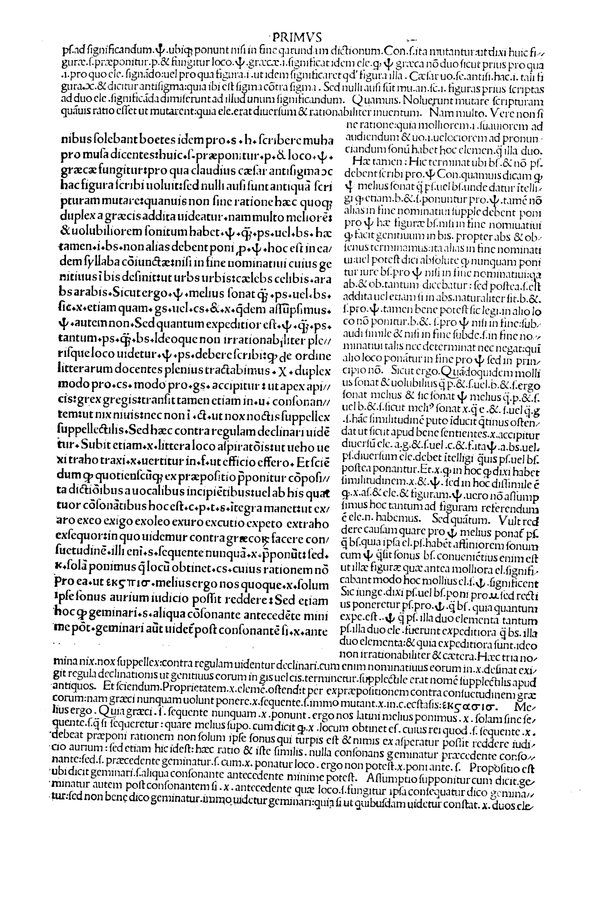 PRIMVS
ps.ad significandum.ψ.ubiq; ponunt nisi in fine q̃rund̃am dictionum. Con. s.ita mutantur:ut dixi huic fi//
guræ.s.præponitur.p.& fungitur loco.ψ.græcæ.i.significat idem ele. q̃. ψ græca nõ duo sicut prius pro qua
.i. pro quo ele. signado: uel pro qua figura.i. ut idem significaret qd' figura illa. Cæsar uo.se.antisi.hac.i. tali fi
gura.ↄc.& dicitur antisigma: quia ibi est cõtra sigma. Sed nulli ausi sūt mu.an.sc.i. figuras prius scriptas
ad duo ele. significãda dimiserunt ad illud unum significandum. Quamuis. Noluerunt mutare scripturam
quāuis ratio esset ut mutarent: quia ele.erat diuersum & rationabiliter inuentum. Nam multo. Vere non si
nibus solebant boetes idem pro.s.h.scribere muha
pro musa dicentes:huic.s.præponitur.p.& loco.ψ.
græcæ fungitur:pro qua claudius cæsar antisigma ↄc
hac figura scribi uoluit:sed nulli ausi sunt antiquã scri
pturam mutare:quanuis non sine ratione hæc quoq;
duplex a græcis addita uideatur.nam multo meliorē:
& uolubiliorem sonitum habet.ψ.q̃.ps.uel.bs.hæ
tamen.i.bs.non alias debent poni.p.ψ.hoc est in ea/
dem syllaba cõiunctæ:nisi in fine nominatiui cuius ge
nitiuus ī bis definit:ut urbs urbis:cælebs celibis.ara
bs arabis.Sicut ergo.ψ.melius sonat q̃.ps.uel.bs.
sic.x.etiam quam.gs.uel.cs.&.x.qdem assūpsimus.
ψ.autem non. Sed quantum expeditior est.ψ.q̃.ps.
tantum.ps.q̃.bs.Ideoque non irrationabiliter ple//
risque loco uidetur.ψ.ps.debere scribi:tq; de ordine
litterarum docentes plenius tractabimus.X.duplex
modo pro.cs.modo pro.gs.accipitur: ut apex api//
cis:grex gregis:transit tamen etiam in.u. consonan//
tem:ut nix niuis:nec non ī.ct.ut nox noctis suppellex
suppellectilis.Sed hæc contra regulam declinari uidē
tur. Subit etiam.x.littera loco aspiratōis:ut ueho ue
xi traho traxi.x.uertitur in.f.ut efficio effero.Et sciē
dum q; quotiēscūq; ex præpositio p̄ponitur cōposi//
ta dictiōibus a uocalibus incipiētibus:uel ab his quat
tuor cōsonātibus hoc est.c.p.t.s.itegra manet:ut ex/
aro exeo exigo exoleo exuro excutio expeto extraho
exsequor:in quo uidemur contra græcoq; facere con/
suetudinē.illi eni.s.sequente nunquā.x.p̄ponūt:sed.
κ.solā ponimus q̃ locū obtinet.cs.cuius rationem nõ
Pro ea.ut εκσπισ.melius ergo nos quoque.x.solum
ipse sonus aurium iudicio possit reddere: Sed etiam
hoc q; geminari.s.aliqua cõsonante antecedēte mini
me pōt.geminari aut̄ uidet̃ post consonantē si.x.ante
ne ratione: quia molliorem.i.suauiorem ad
audiendum & uo.i.uelociorem ad pronun
ciandum sonū habet hoc elemen.q̃ illa duo.
Hæ tamen: Hic terminat ubi bs.& nõ ps.
debent scribi pro.ψ. Con.quamuis dicam q̃
ψ melius sonat q̃ ps.uel bs.unde datur itelli/
gi q; etiam.b.&.s.ponuntur pro.ψ.tamē nō
alias in fine nominatiui supple debent poni
pro ψ hæ figuræ bs.nisi in fine nominatiui
q; facit genitiuum in bis. propter abs & ob//
senus terminamus:ita alias in fine nominati
ui:uel potest dici absolute q; nunquam poni
tur iure bs.pro ψ nisi in fine nominatiui:qa
ab.& ob.tantum dicebatur: sed postea.s.est
addita uel etiam si in abs.naturaliter sit.b.&
s.pro.ψ.tamen bene potest sic legi.in alio lo
co nõ ponitur.b.&.s.pro ψ nisi in fine:sub.
audi simile & nisi in fine subde.s.in fine no//
minatiui talis nec determinat nec negat:qui
alio loco ponatur in fine pro ψ sed in prin//
cipio nõ. Sicut ergo.Quādoquidem molli
us sonat & uolubilius q̃ p.&.s.uel.b.&.s.ergo
sonat melius & sic sonat ψ melius q̃.p.&.s.
uel b.&.s.sicut meli⁹ sonat x.q̃ c.&.s.uel q̃.g.
.s.hāc similitudinē puto iducit q̃tinus osten//
dat ut sicut apud bene sentientes.x.accipitur
diuersū ele. a.g.&s.uel.c.&.s.ita ψ.a.bs.uel.
ps.diuersum ele.debet itelligi quis ps.uel bs.
postea ponantur. Et.x.q; in hoc q; dixi habet
similitudinem.x.&.ψ.sed in hoc dissimile ē
q; .x.as.& ele.& figuram.ψ.uero nō assump
simus hoc tantum ad figuram referendum
ē ele.n. habemus. Sed quātum. Vult red
dere causam quare pro ψ melius ponat̃ ps.
q̃ bs.quia ipsa el.ps.habēt affiniorem sonum
cum ψ q̃sit sonus bs.conueniētius enim est
ut illæ figuræ quæ antea molliora el.signifi//
cabant modo hoc mollius el.s.ψ.significent
Sic iunge.dixi ps.uel bs.poni pro.u.sed recti
us poneretur ps.pro.ψ.q̃ bs.quia quantum
expe.est..ψ.q̃ ps.illa duo elementa tantum
ps.illa duo ele.fuerunt expeditiora q̃ bs.illa
duo elementa: & quia expeditiora sunt.
non irrationabiliter & cætera. Hæc tria no//
mina nix.nox suppellex:contra regulam uidentur declinari.cum enim nominatiuus eorum in.x.desinat exi//
git regula declinationis ut genitiuus eorum in gis uel cis.terminet̃.suppellectile erat nomē suppellectilis apud
antiquos. Et sciendum. Proprietatem.x.elemē.ostendit per expræpositionem contra consuetudinem græ
corum:nam græci nunquam uolunt ponere.x.sequente.s.immo mutant.x.in.c.ecstasis:εκστασισ. Me//
lius ergo. Quia græci.i.sequente nunquam.x.ponunt.ergo nos latini melius ponimus.x.solam sine se//
quente.s.q̃ si sequeretur:quare melius supo.cum dicit q;.x.locum obtinet cs.cuius rei quod.s.sequente.x.
debeat præponi rationem non solum ipse sonus qui turpis est & nimis ex asperatur possit reddere iudi//
cio aurium:sed etiam hic idest:hæc ratio & iste similis.nulla consonans geminatur præcedente conso//
nante:sed.s.præcedente s.cum.x.ponatur loco.ergo non potest.x.poni ante.s. Propositio est
ubi dicit geminari.s.aliqua cōsonante antecedente minime potest. Assumptio supponitur cum dicit.ge//
minatur autem post consonantem si.x.antecedente quæ loco.s.fungitur ipsa consequatur dico gemina//
tur:sed non benē dico geminatur.immo uidetur geminari:quia si ut quibusdam uidetur constat.x.duos ele//